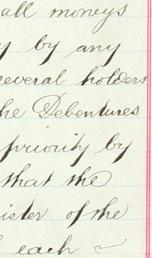 all moneys
by any
several holders
the Debentures
priority by
that the
ister of the
each ~